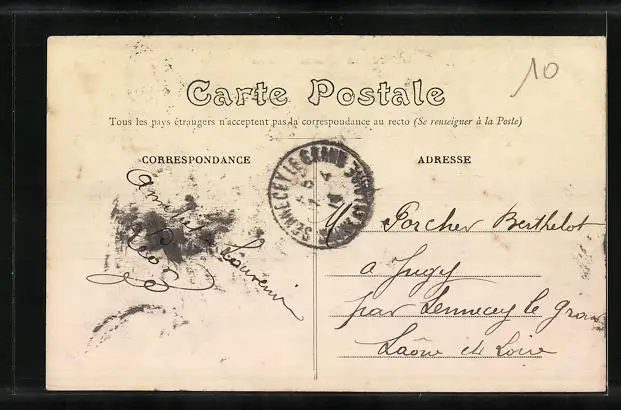 10
Carte Postale
Tous les pays étrangers n'acceptent pas la correspondance au recto (Se renseigner à la Poste)
CORRESPONDANCE
ADRESSE
SENNECEY LE GRAND
Souvenir
M Porcher Berthelot
a Jugy
par Sennecey le Gran
Saône et Loire